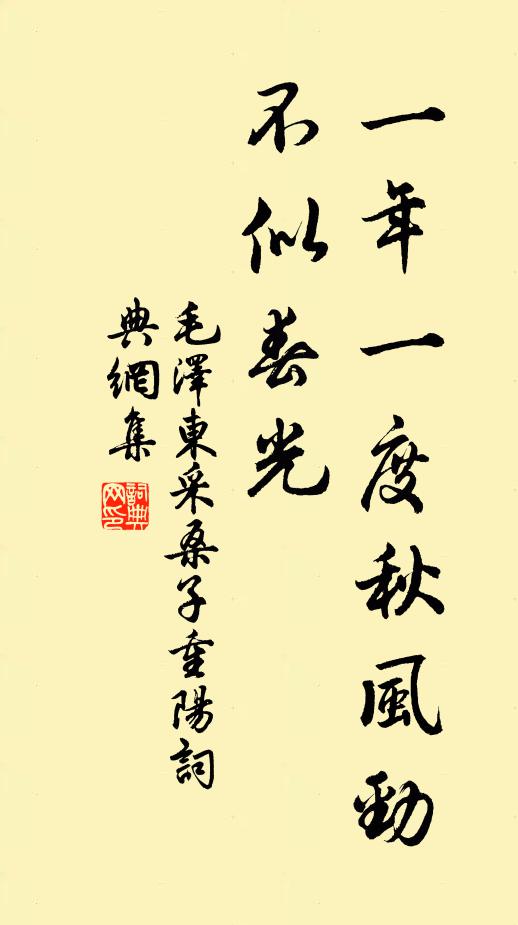 一年一度秋風勁
不似春光
毛澤東采桑子重陽詞
典網集
詞典
网印